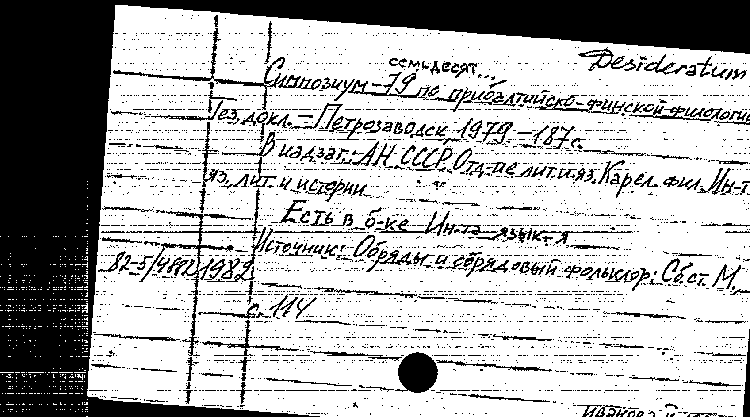 Desideratum
семьдесят...
Симпозиум-79 по прибалтийско-финской филологии
Тез. докл. — Петрозаводск, 1979. — 187 с.
В надзаг.: АН СССР, Отд-ние лит. и яз. Карел. фил. Ин-т
яз., лит. и истории
Есть в б-ке Ин-та языкч-я
Источник: Обряды и обрядовый фольклор: Сб. ст. М.,
82-5/4892 1982
с. 114